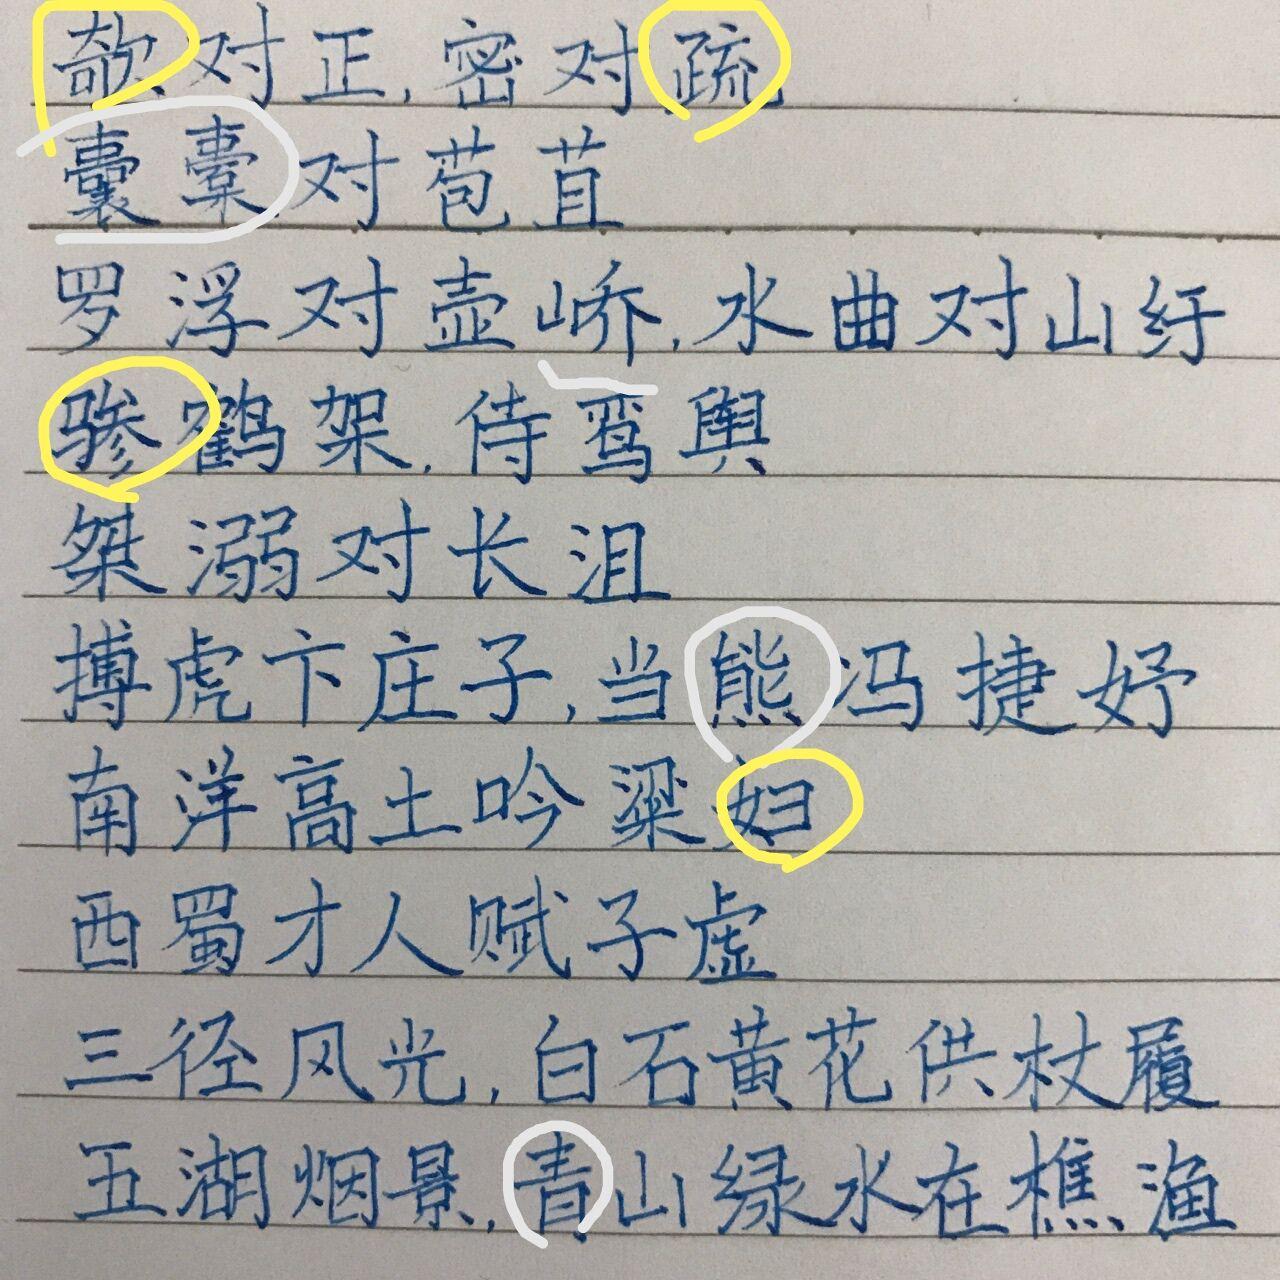 欹对正,密对疏
囊橐对苞苴
罗浮对壶峤,水曲对山纡
骖鹤架,侍鸾舆
桀溺对长沮
搏虎卞庄子,当熊冯捷妤
南洋高土吟粱妇
西蜀才人赋子虚
三径风光,白石黄花供杖履
五湖烟景,青山绿水在樵渔